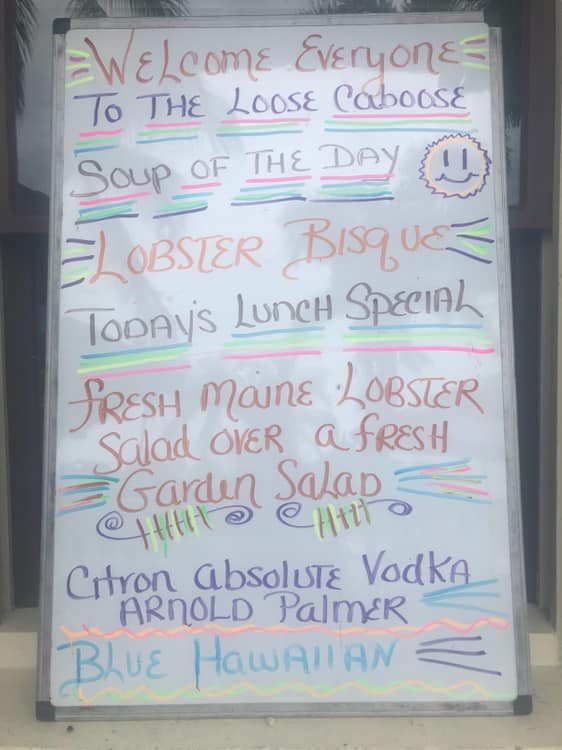 Welcome Everyone
To THE LOOSE Caboose
Soup OF THE DAY
LOBSTER BisQUE
TODAY's LUNCH SPECIAL
FRESH MaINE LOBSTER
Salad OVER a FRESH
Garden SaLaD
Citron absoLUTE VodkA
ARNOLD PalmER
BLUE HawaIIAN